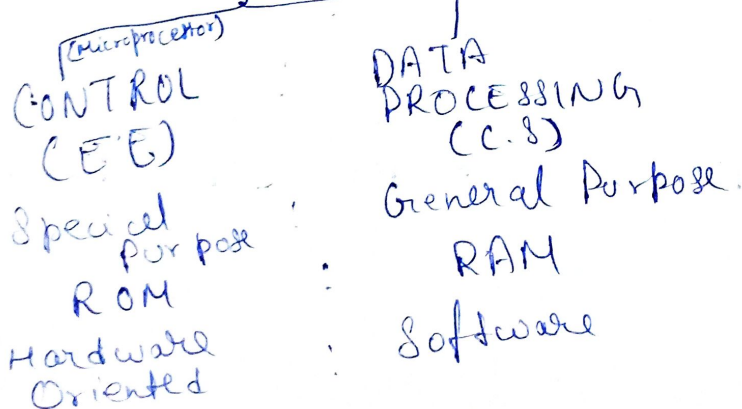 (Microprocessor)
CONTROL
(E.E)
Special
Purpose
ROM
Hardware
Oriented
DATA
PROCESSING
(C.S)
General Purpose.
RAM
Software